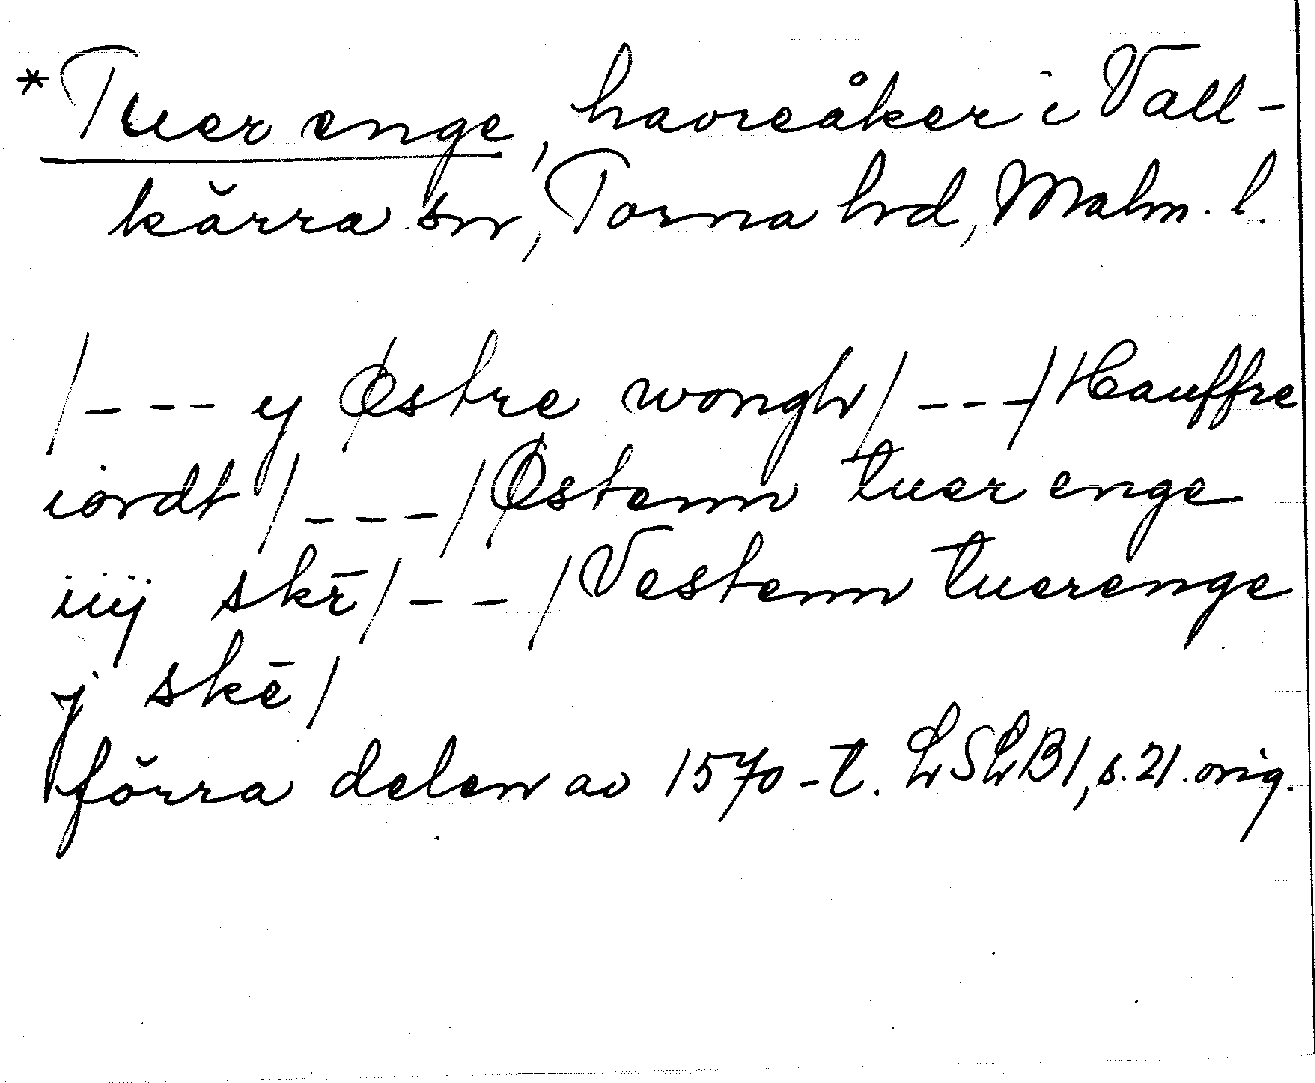 *Tuer enge, havreåker i Vall-
kärra sn, Torna hd, Malm. l.
/--- y Østre wongh/---/Hauffre
iordt/---/Østenn tuer enge
iiij skē/--/Vestenn tuerenge
j skē/
förra delen av 1570-t. LSLB1, s.21. orig.